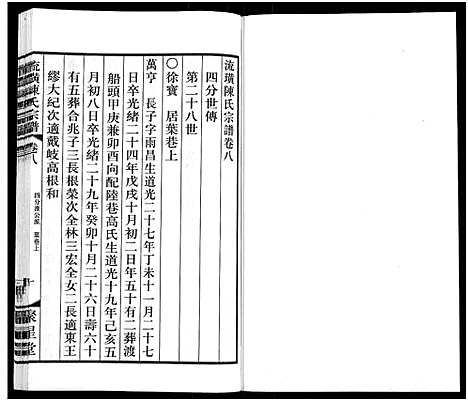 流璜陳氏宗譜卷八
四分世傳
第二十八世
○徐寶　居葉巷上
萬亨　長子字雨昌生道光二十七年丁未十一月二十七
日卒光緒二十四年戊戌十月初二日年五十有二葬渡
船頭甲庚兼卯酉向配陸巷高氏生道光十九年己亥五
月初八日卒光緒二十九年癸卯十月二十六日壽六十
有五葬合兆子三長根榮次全林三宏全女二長適東王
繆大紀次適戴岐高根和
流璜陳氏宗譜　卷八
四分淮公派　葉巷上
聚星堂